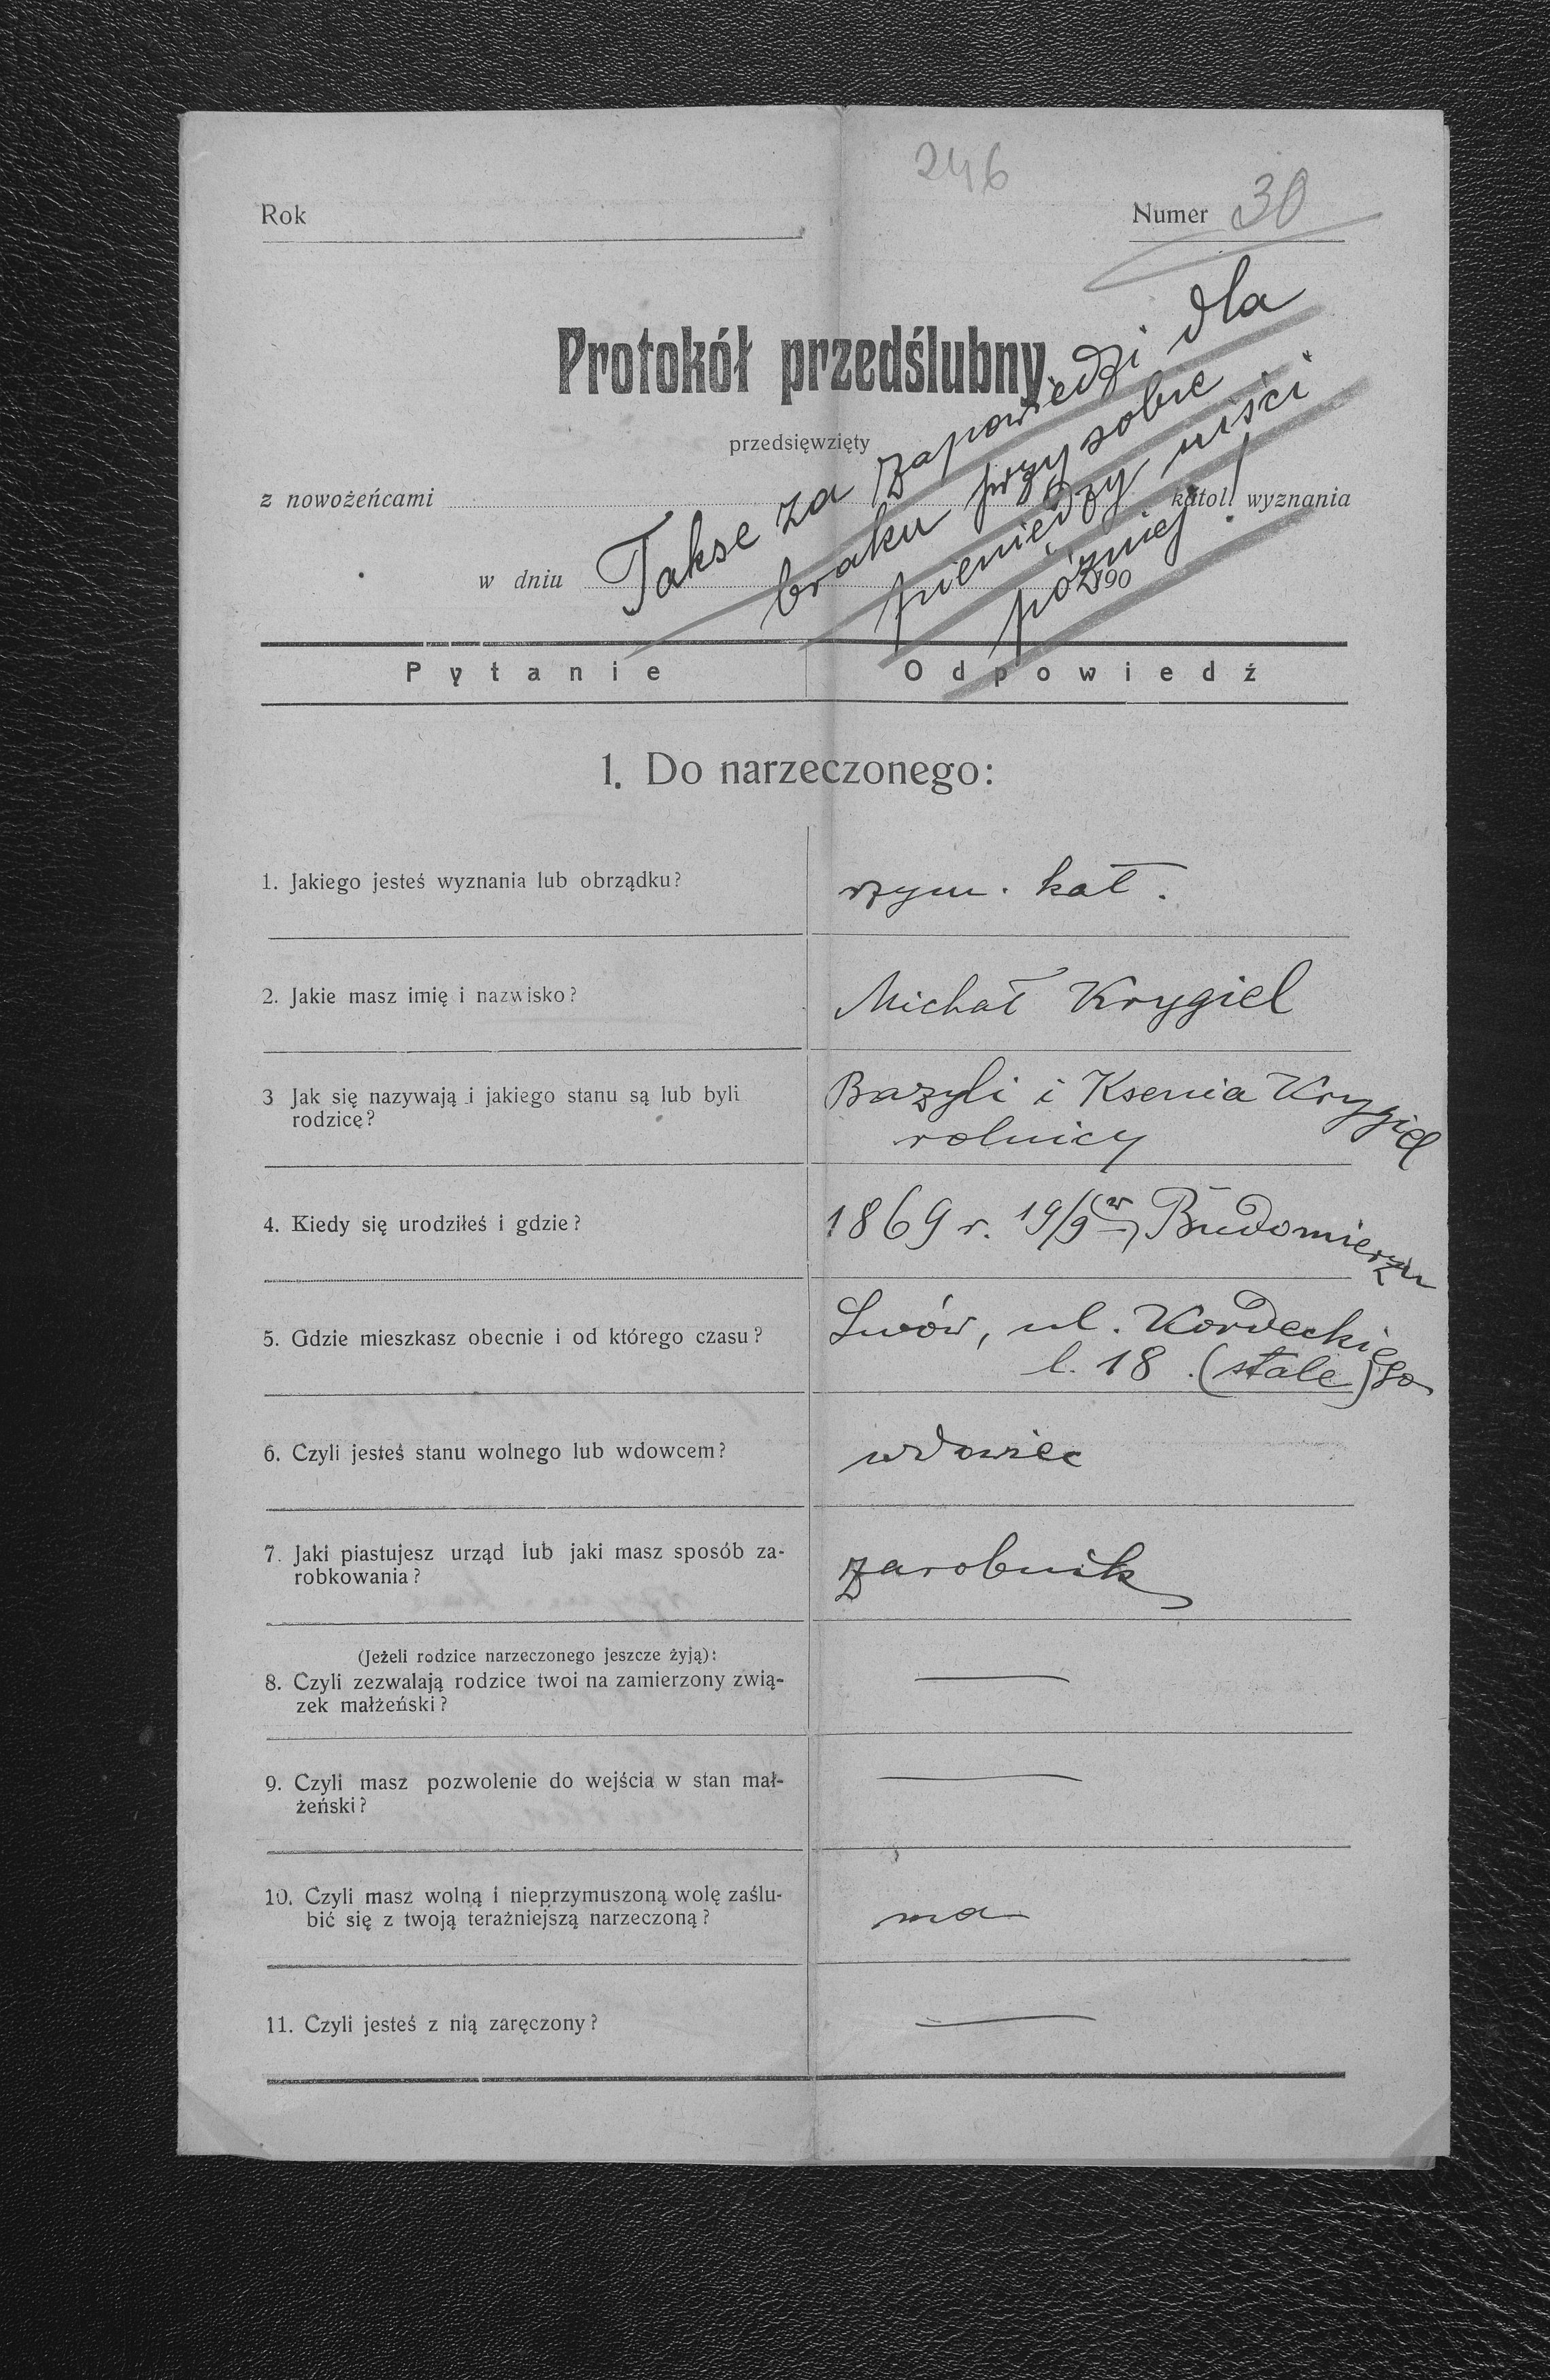 246
Rok
Numer 30
Protokół przedślubny
przedsięwzięty
z nowożeńcami katol. wyznania
w dniu 190
Takse za zapowiedzi dla
braku przy sobie
pieniędzy uiści
później!
Pytanie Odpowiedź
1. Do narzeczonego:
1. Jakiego jesteś wyznania lub obrządku?
rzym. kat.
2. Jakie masz imię i nazwisko?
Michał Krygiel
3 Jak się nazywają i jakiego stanu są lub byli
rodzice?
Bazyli i Ksenia Krygiel
rolnicy
4. Kiedy się urodziłeś i gdzie?
1869 r. 19/9 w Budomierzu
5. Gdzie mieszkasz obecnie i od którego czasu?
Lwów, ul. Kordeckiego
l. 18. (stale)
6. Czyli jesteś stanu wolnego lub wdowcem?
wdowiec
7. Jaki piastujesz urząd lub jaki masz sposób za-
robkowania?
zarobnik
(Jeżeli rodzice narzeczonego jeszcze żyją):
8. Czyli zezwalają rodzice twoi na zamierzony zwią-
zek małżeński?
9. Czyli masz pozwolenie do wejścia w stan mał-
żeński?
10. Czyli masz wolną i nieprzymuszoną wolę zaślu-
bić się z twoją teraźniejszą narzeczoną?
ma
11. Czyli jesteś z nią zaręczony?